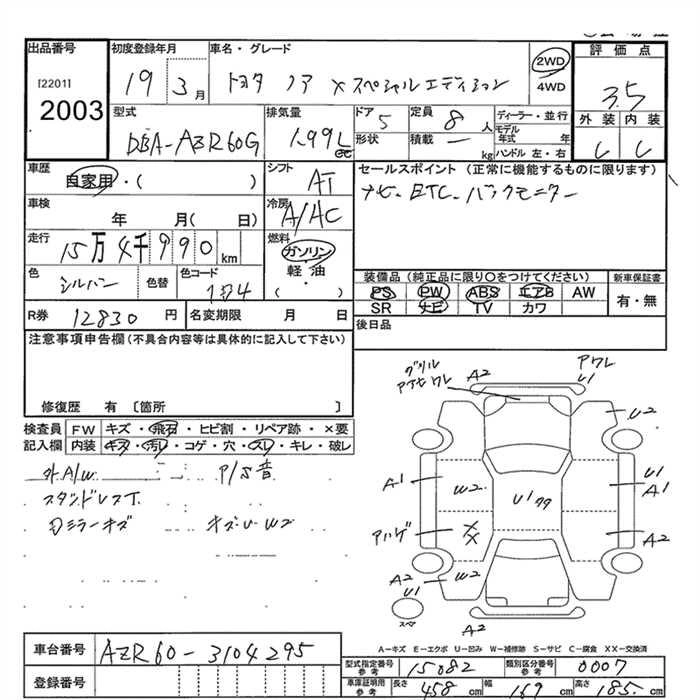 出品番号 初度登録年月 車名・グレード 評価点
[2201] 19 3月 トヨタ ノア Xスペシャルエディション 2WD 4WD 3.5
2003
外装 内装
C C
型式 排気量 ドア 定員 ディーラー・並行
DBA-AZR60G 1.99L 5 8人 モデル年式 年
形状 積載 — kg ハンドル 左・右
車歴 シフト セールスポイント (正常に機能するものに限ります)
自家用・( ) AT ナビ. ETC. バックモニター
車検 冷房
年 月( 日) A/AC
走行 燃料
15万4千990km ガソリン
軽油
( )
色 色替 色コード
シルバー 1E4
装備品 (純正品に限り○をつけてください) 新車保証書
PS PW ABS エアB AW 有・無
SR ナビ TV カワ
R券 12830円 名変期限 月 日 後日品
注意事項申告欄(不具合内容等は具体的に記入して下さい)
修復歴 有 [箇所 ]
検査員 FW キズ・飛石・ヒビ割・リペア跡・×要
記入欄 内装 キズ・汚レ・コゲ・穴・スレ・キレ・破レ
外A/W P/S音
スタンドレス丁
Dミラーキズ キズU W2
グリル A2 アワレ
アナセワレ U1
U2
A1 W2 U177 U1
A1
アハゲ XX A2
A2 W2
U1
スペア A2
A−キズ E−エクボ U−凹み W−補修跡 S−サビ C−腐食 XX−交換済
車台番号 AZR60-3104295
型式指定番号 参考 15082 類別区分番号 参考 0007
登録番号 車庫証明用 参考 長さ 458cm 幅 169cm 高さ 185cm